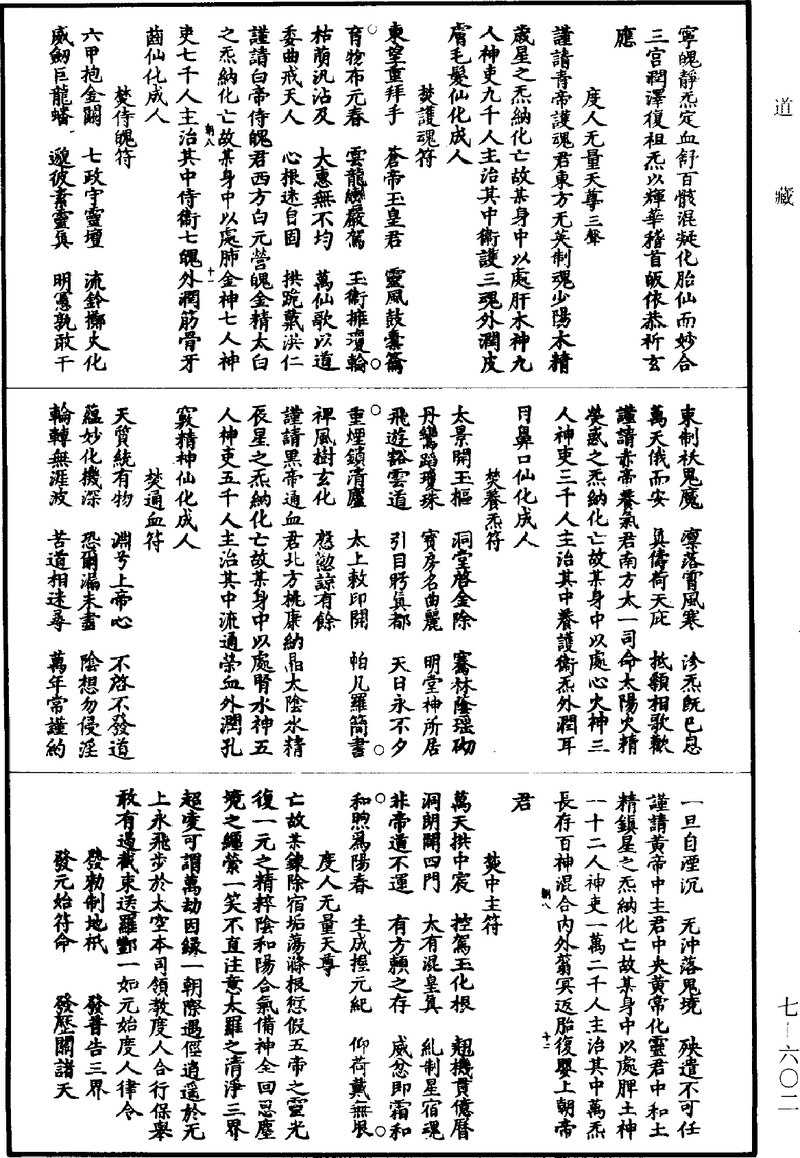 道藏
寧魄靜炁定血舒百骸混凝化胎仙而妙合
三宮潤澤復祖炁以輝華稽首皈依恭祈玄
應
度人无量天尊三聲
謹請青帝護魂君東方无英制魂少陽木精
歲星之炁納化亡故某身中以處肝木神九
人神吏九千人主治其中衛護三魂外潤皮
膚毛髮仙化成人
焚護魂符
東望重拜手 蒼帝玉皇君 靈風鼓橐籥
育物布元春 雲龍巒嚴駕 玉衛擁瓊輪
枯荫汎沾及 大惠無不均 萬仙歌以道
委曲戒天人 心根迷自固 拱跪戴洪仁
謹請白帝侍魄君西方白元營魄金精太白
之炁納化亡故某身中以處肺金神七人神
朝八 十一
吏七千人主治其中侍衛七魄外潤筋骨牙
齒仙化成人
焚侍魄符
六甲抱金關 七政守靈壇 流鈴擲火化
威劒巨龍蟠 邈彼素靈真 明憲孰敢干
東制祆鬼魔 廩落霄風寒 沴炁既已息
萬天俄而安 真儔荷天庇 抵額相歌歡
謹請赤帝養氣君南方太一司命太陽火精
熒惑之炁納化亡故某身中以處心火神三
人神吏三千人主治其中養護衛炁外潤耳
目鼻口仙化成人
焚養炁符
太景開玉樞 洞堂啓金除 騫林蔭瑶砌
丹鸞蹈瓊珠 寶房名曲麗 明堂神所居
飛遊豁雲道 引目眄真都 天日永不夕
重煙鎖清廬 太上敕印開 帕几羅簡書
裨風樹玄化 慇懃諒有餘
謹請黑帝通血君北方桃康納晶太陰水精
辰星之炁納化亡故某身中以處腎水神五
人神吏五千人主治其中流通榮血外潤孔
竅精神仙化成人
焚通血符
天質統有物 淵兮上帝心 不啓不發道
蘊妙化機深 恐爾漏未盡 陰想勿侵淫
輪轉無涯波 苦道相迷尋 萬年常謹約
一旦自湮沉 无沖落鬼境 殃遣不可任
謹請黃帝中主君中央黃常化靈君中和土
精鎮星之炁納化亡故某身中以處脾土神
一十二人神吏一萬二千人主治其中萬炁
長存百神混合內外翁冥返胎復嬰上朝帝
朝八 十二
君
焚中主符
萬天拱中宸 控駕玉化根 魁機貫億曆
洞朗開四門 太有混皇真 糺制星宿魂
非帝道不運 有方賴之存 威忿即霜和
和煦為陽春 生成握元紀 仰荷戴無垠
度人无量天尊
亡故某鍊除宿垢蕩滌根愆假五帝之靈光
復一元之精粹陰和陽合氣備神全回惡塵
境之纏縈一笑不直注意太羅之清淨三界
超㚆可謂萬劫因緣一朝際遇徑逍遥於无
上永飛步於太空本司領教度人合行保舉
敢有遏截束送羅酆一如元始度人律令
發勅制地祇 發普告三界
發元始符命 發歷關諸天
七—六〇二